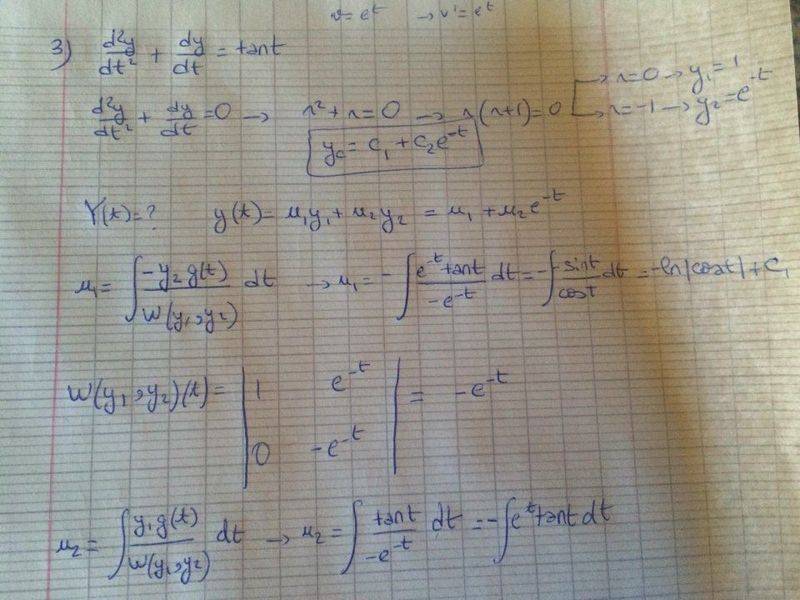 v = e^t → v' = e^t
3) d²y/dt² + dy/dt = tant
d²y/dt² + dy/dt = 0 → r² + r = 0 → r(r+1) = 0 → r = 0 → y₁ = 1
→ r = -1 → y₂ = e^-t
y_c = c₁ + c₂e^-t
Y(t) = ? y(t) = u₁y₁ + u₂y₂ = u₁ + u₂e^-t
u₁ = ∫ -y₂g(t)/W(y₁,y₂) dt → u₁ = -∫ e^-t tant/-e^-t dt = -∫ -sint/cost dt = -ln|cost| + C₁
W(y₁,y₂)(t) = |1 e^-t| = -e^-t
|0 -e^-t|
u₂ = ∫ y₁g(t)/W(y₁,y₂) dt → u₂ = ∫ tant/-e^-t dt = -∫ e^t tant dt